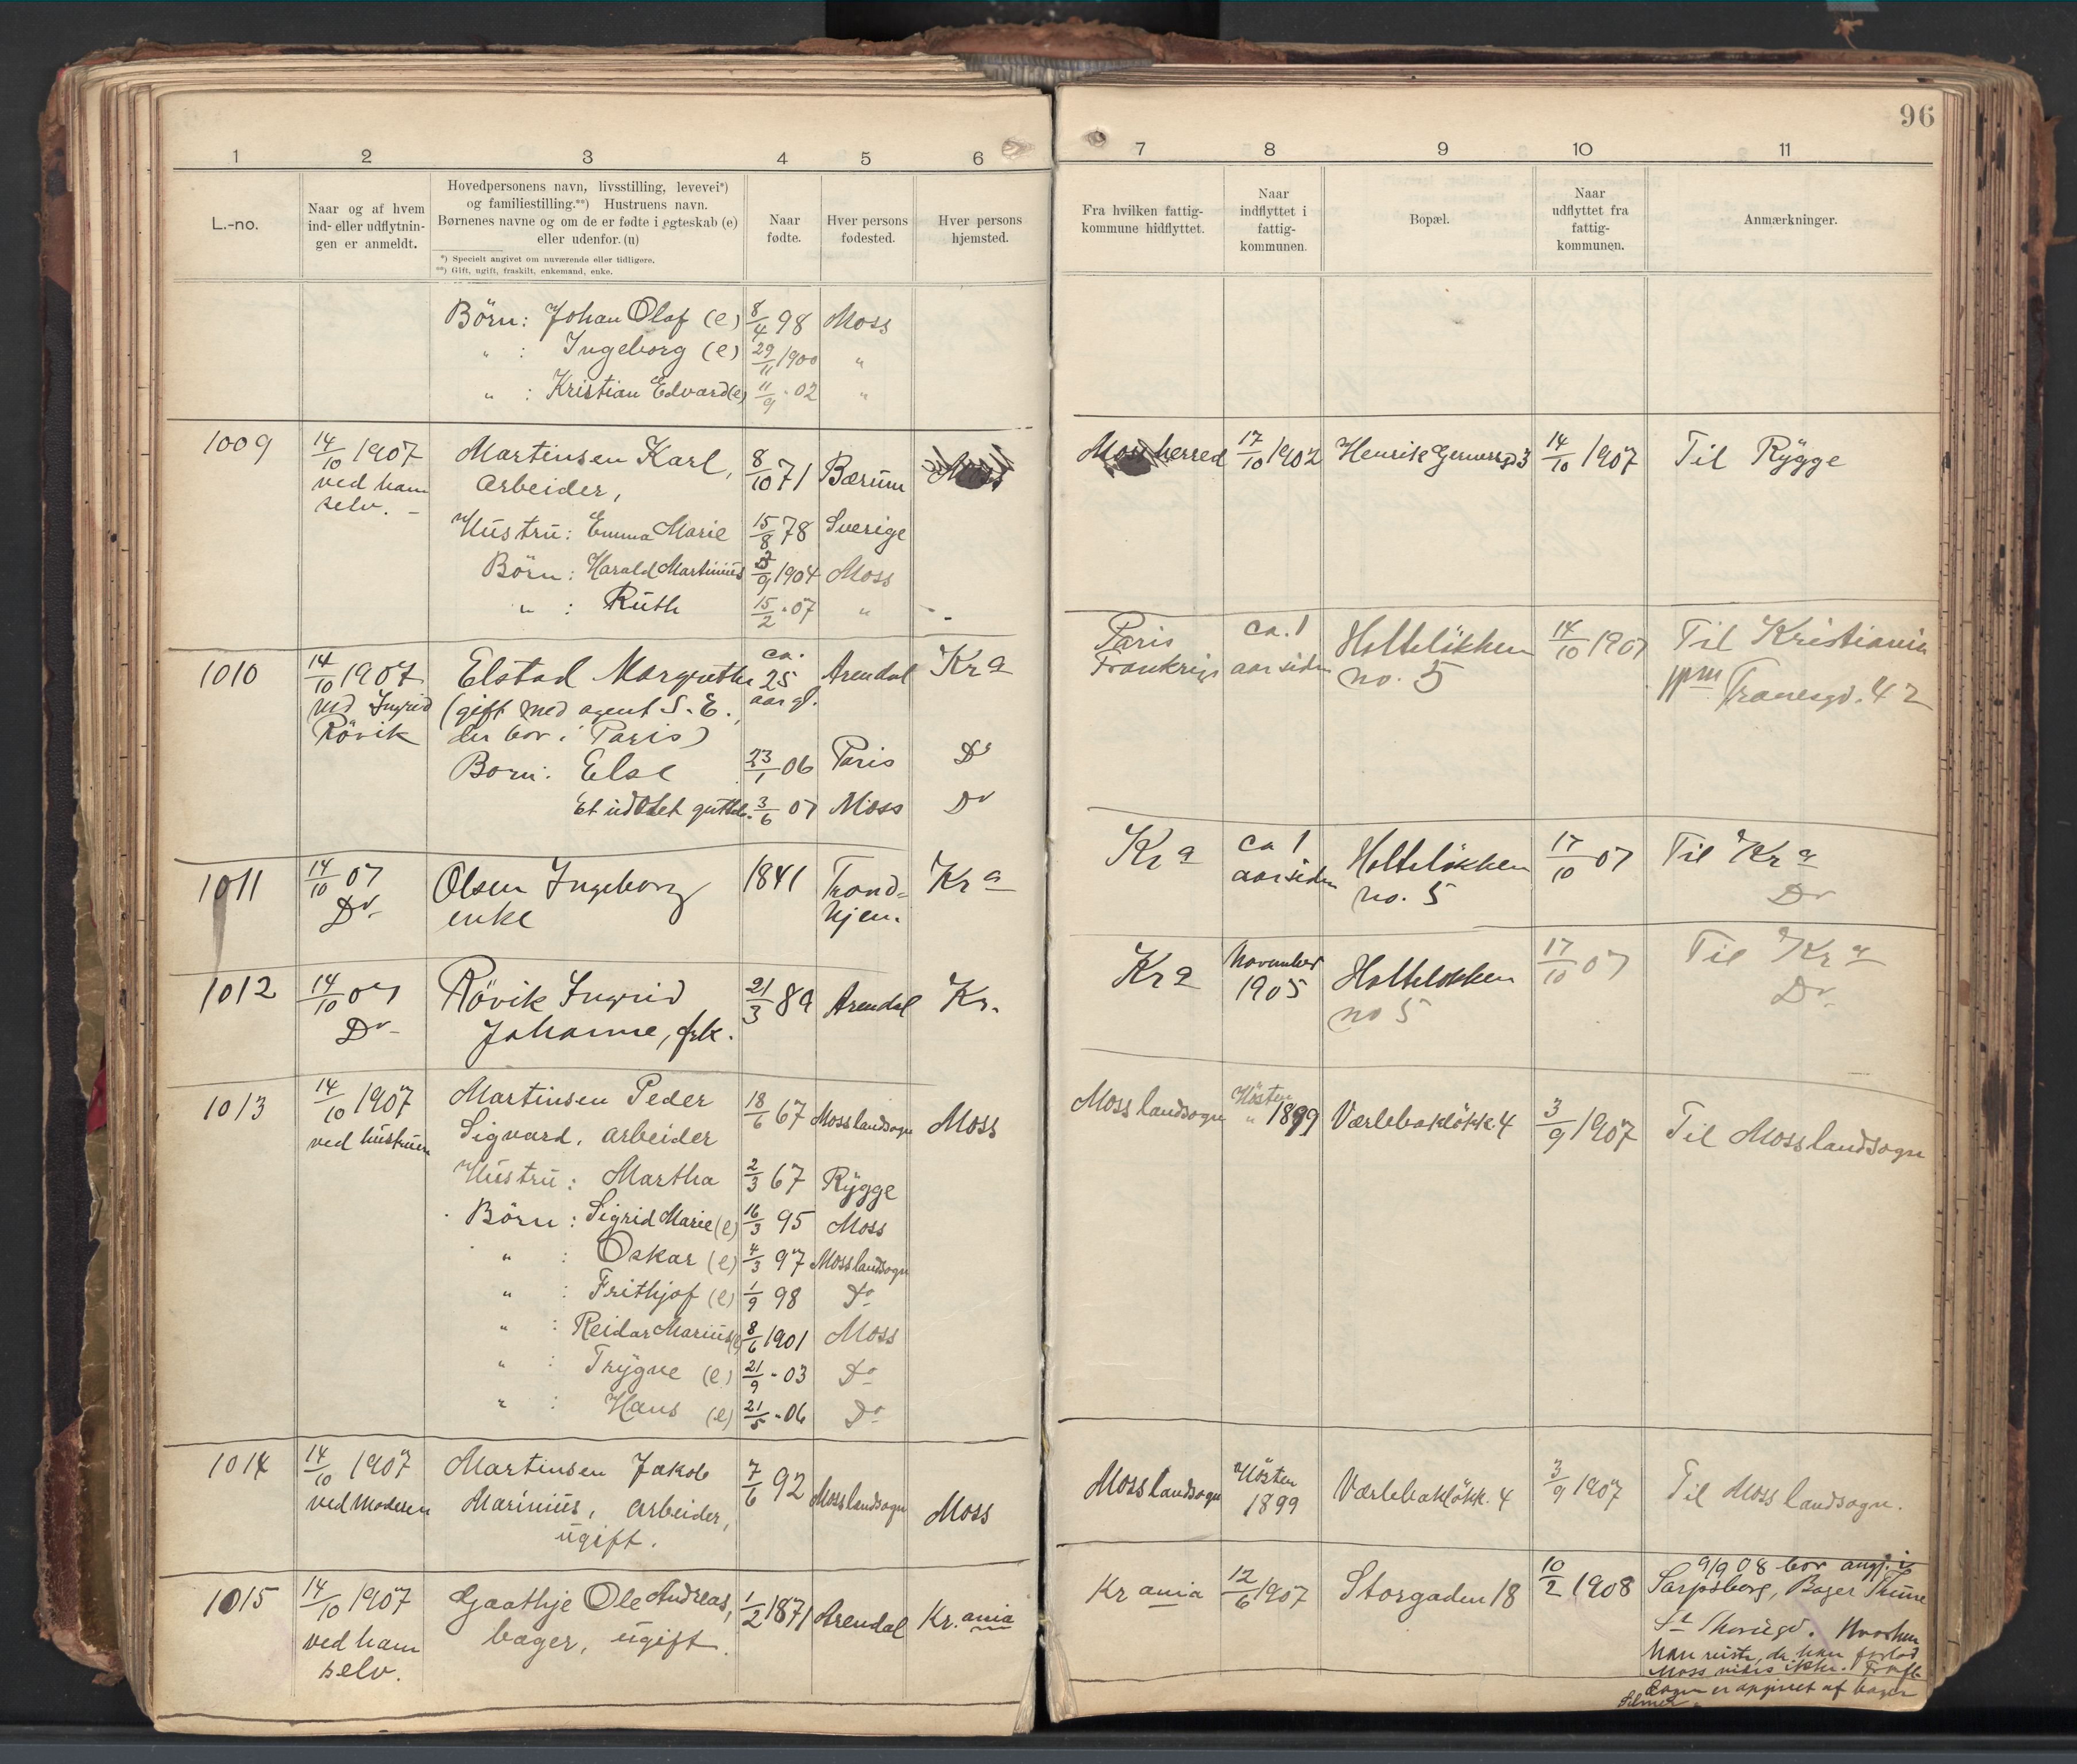 96
1 2 3 4 5 6 7 8 9 10 11
L.-no.
Naar og af hvem
ind- eller udflytnin-
gen er anmeldt.
Hovedpersonens navn, livsstilling, levevei*)
og familiestilling.**) Hustruens navn.
Børnenes navne og om de er fødte i egteskab (e)
eller udenfor. (u)
*) Specielt angivet om nuværende eller tidligere.
**) Gift, ugift, fraskilt, enkemand, enke.
Naar
fødte.
Hver persons
fødested.
Hver persons
hjemsted.
Fra hvilken fattig-
kommune hidflyttet.
Naar
indflyttet i
fattig-
kommunen.
Bopæl.
Naar
udflyttet fra
fattig-
kommunen.
Anmærkninger.
Börn: Johan Olaf (e) 8/4 98 Moss
" : Ingeborg (e) 29/11 1900 "
" : Kristian Edvard (e) 11/9 - 02 "
1009 14/10 1907 Martinsen Karl, 8/10 71 Bærum Moss Moss herred 17/10 1902 Henrik Gernersgd 3 14/10 1907 Til Rygge
ved ham Arbeider,
selv. -
Hustru: Emma Marie 15/8 78 Sverige
Börn: Harald Martinius 3/9 1904 Moss
" : Ruth 15/2 - 07 "
1010 14/10 1907 Elstad Margrethe ca. 25 Arendal Kra Paris ca. 1 Holteløkken 14/10 1907 Til Kristiania
ved Ingrid (gift med agent S. E. aar gl. Frankrig aar siden no. 5 Tranesgd. 42
Rövik der bor i Paris)
Born: Else 23/1 06 Paris Do
Et udøbt gutteb. 3/6 07 Moss Do
1011 14/10 07 Olsen Ingeborg 1841 Trond= Kra Kra ca 1 Holteløkken 17/10 07 Til Kra
Do enke hjem. aar siden no. 5 Do
1012 14/10 07 Rövik Ingrid 21/3 89 Arendal Kr. Kra November Holteløkken 17/10 07 Til Kra
Do Johanne, frk. 1905 no 5 Do
1013 14/10 1907 Martinsen Peder 18/6 67 Moss landsogn Moss Moss landsogn Hösten 1899 Værlebakløkk. 4 3/9 1907 Til Moss landsogn
ved hustruen Sigvard, arbeider
Hustru: Martha 2/3 67 Rygge
Börn: Sigrid Marie (e) 16/3 95 Moss
" : Oskar (e) 4/3 97 Moss landsogn
" : Frithjof (e) 1/9 98 Do
" : Reidar Marius (e) 8/6 1901 Moss
" : Trygve (e) 21/9 - 03 Do
" : Hans (e) 21/5 - 06 Do
1014 14/10 1907 Martinsen Jakob 7/6 92 Moss landsogn Moss Moss landsogn Hösten 1899 Værlebakløkk. 4 3/9 1907 Til Moss landsogn.
ved Moderen Marinius, arbeider,
ugift.
1015 14/10 1907 Gaathje Ole Andreas, 1/2 1871 Arendal Kr. ania Kr ania 12/6 1907 Storgaden 18 10/2 1908 9/9 08 bor ang. i
ved ham bager, ugift. Sarpsborg, Bager Thune
selv. St Mariegd. Hvorhen
han reiste, da han forlod
Moss vides ikke.
er opgivet af bager